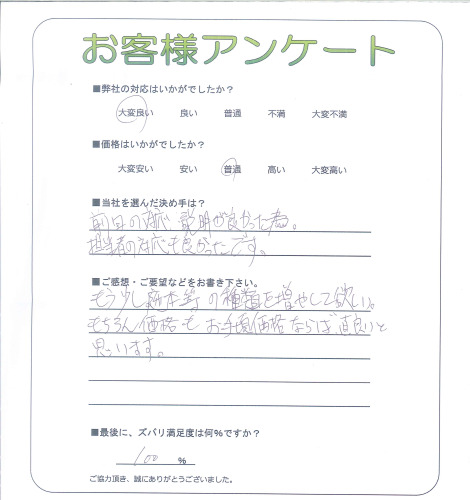 お客様アンケート
■弊社の対応はいかがでしたか？
大変良い 良い 普通 不満 大変不満
■価格はいかがでしたか？
大変安い 安い 普通 高い 大変高い
■当社を選んだ決め手は？
前日の対応、説明が良かった為。
担当者の対応も良かったです。
■ご感想・ご要望などをお書き下さい。
もう少し の種類を増やして欲しい。
もちろん価格も お手頃価格ならば 尚良いと
思います。
■最後に、ズバリ満足度は何％ですか？
100 ％
ご協力頂き、誠にありがとうございました。